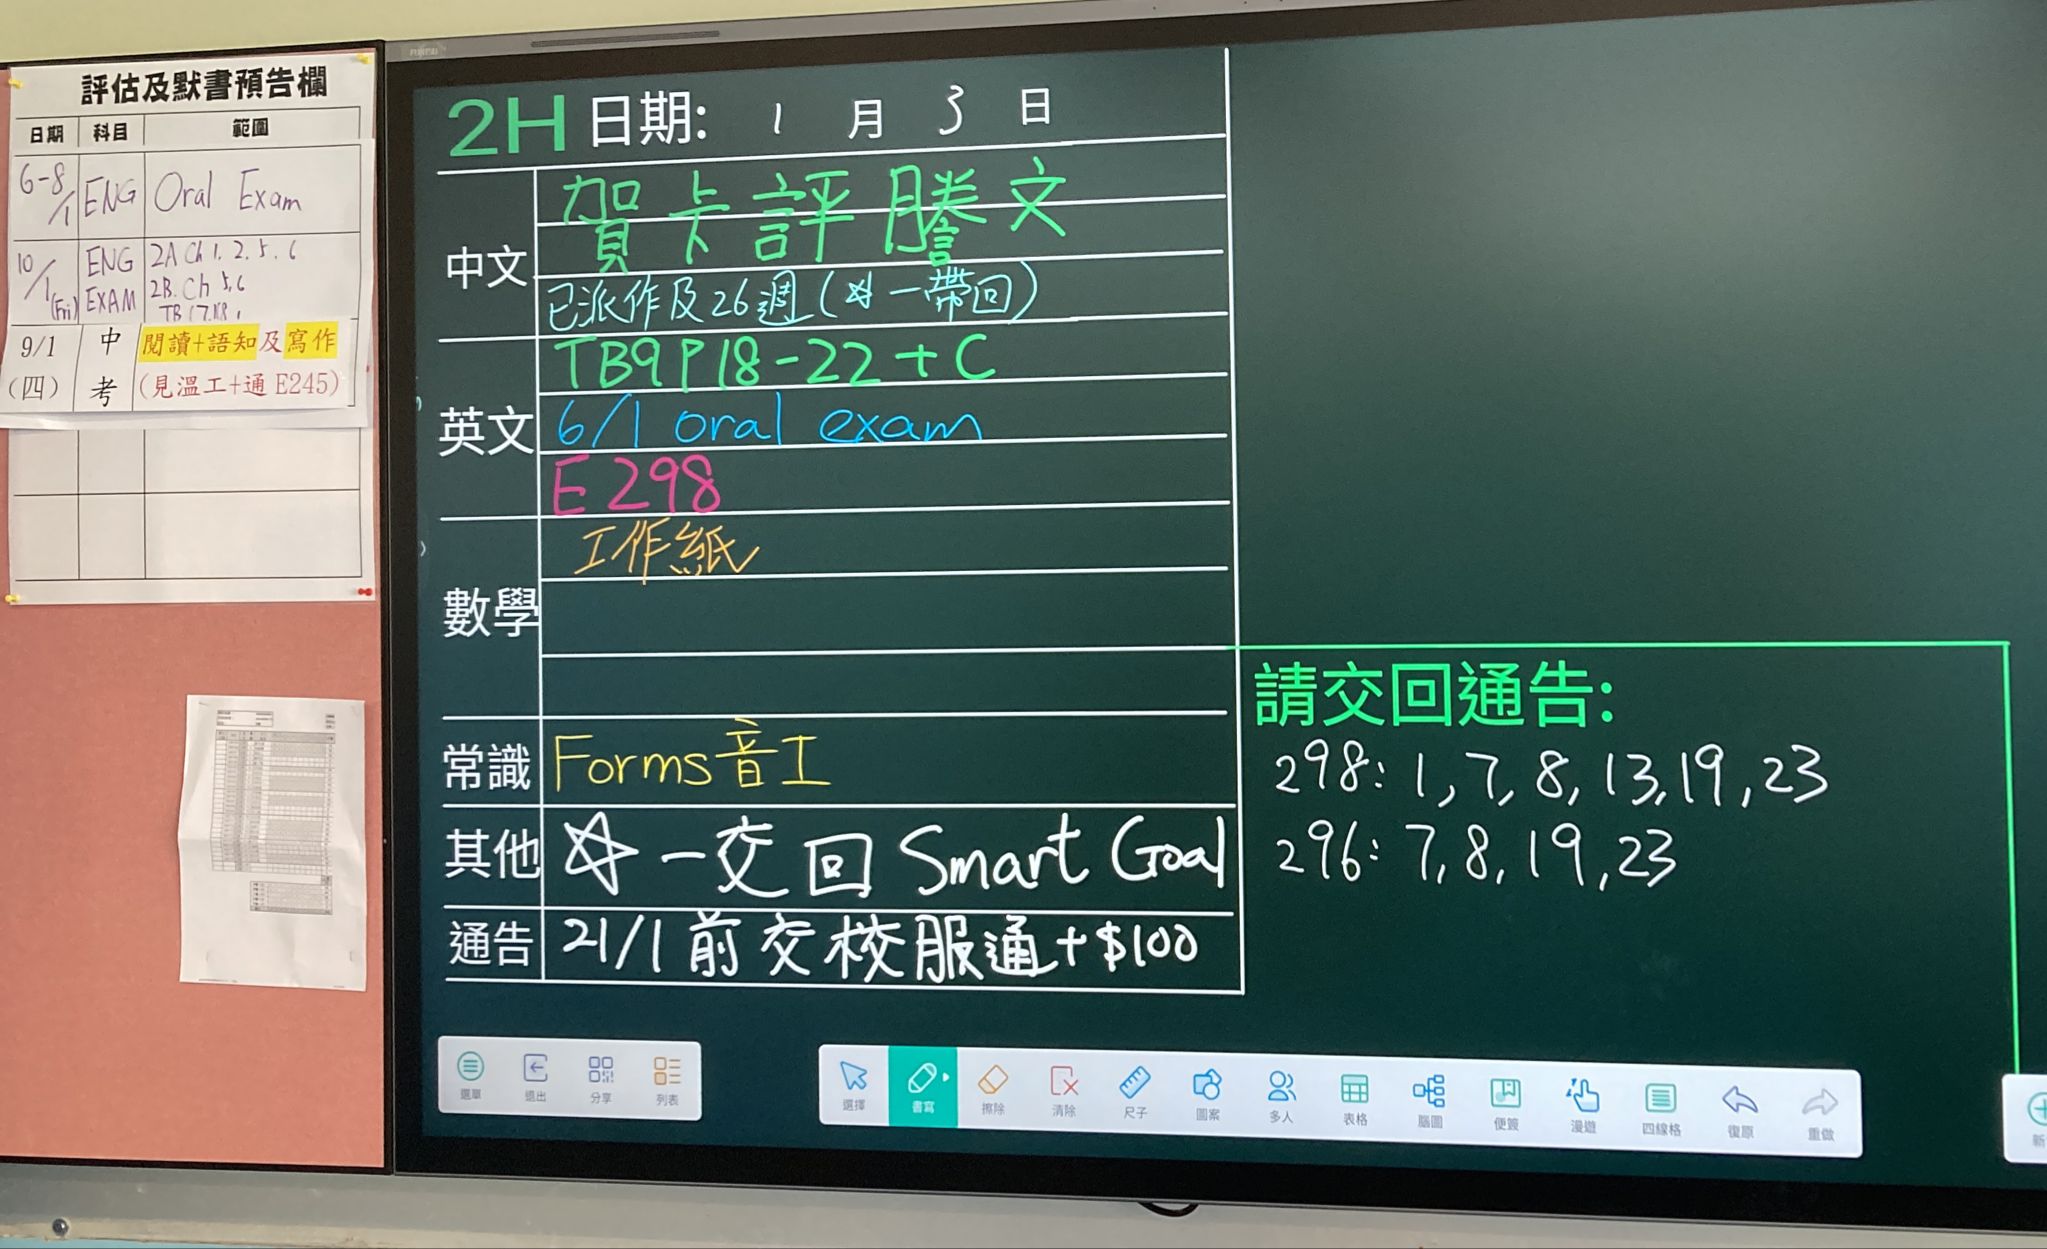 評估及默書預告欄
日期 科目 範圍
6-8/1 ENG Oral Exam
10/1 (Fri) ENG EXAM 2A Ch 1. 2. 5. 6
2B. Ch 5,6
TB 17,18,
9/1 (四) 中考 閱讀+語知及寫作
(見溫工+通 E245)
2H 日期: 1 月 3 日
中文
賀卡評謄文
已派作及26週(☆一帶回)
英文
TB9 P18-22 + C
6/1 oral exam
E298
數學
工作紙
常識 Forms音工
其他 ☆一交回 Smart Goal
通告 21/1前交校服通+$100
請交回通告:
298: 1, 7, 8, 13, 19, 23
296: 7, 8, 19, 23
選單 退出 分享 列表
選擇 書寫 擦除 清除 尺子 圖案 多人 表格 腦圖 便簽 漫遊 四線格 復原 重做